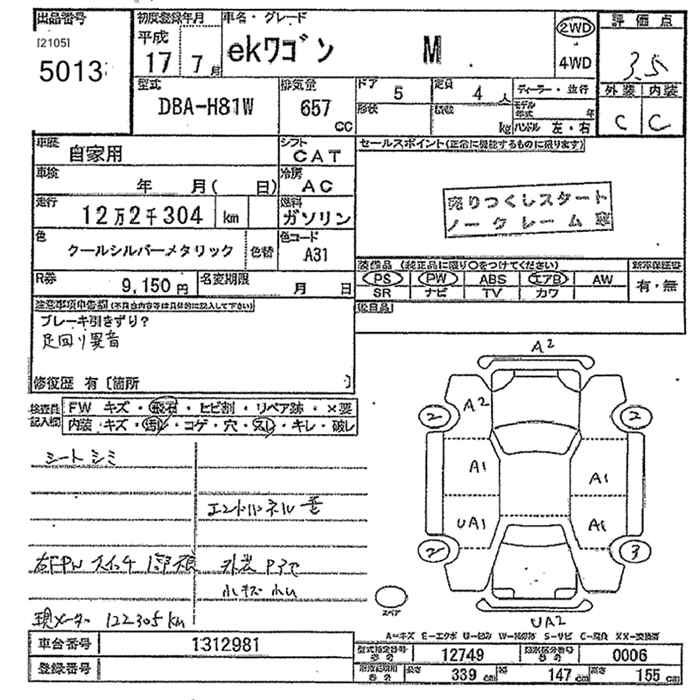 出品番号 初度登録年月 車名・グレード 2WD 評価点
[2105] 平成
5013 17 7月 ekワゴン M 4WD 3.5
型式 排気量 ドア 5 定員 4人 ディーラー・並行 外装 内装
DBA-H81W 657 CC 形状 積数 kg モデル年式 年 C C
ハンドル 左・右
車歴 自家用 シフト CAT セールスポイント(正常に機能するものに限ります)
車検 年 月( 日) 冷房 AC
売りつくしスタート
ノークレーム
走行 12万2千304 km 燃料 ガソリン
色 クールシルバーメタリック 色替 色コード A31
装備品 (純正品に限り○をつけてください) 新車保証書
R券 9,150円 名変期限 月 日
PS PW ABS エアB AW 有・無
SR ナビ TV カワ
注意事項申告欄(不具合内容等は具体的に記入して下さい)
ブレーキ引きずり?
足回り異音
修復歴 有 [箇所 ]
検査員記入欄 FW キズ・飛石・ヒビ割・リペア跡・×要
内装・キズ・汚レ・コゲ・穴・スレ・キレ・破レ
シートシミ
右FPWスイッチ
小キズ 小ム
現メーター 122305km
A2
A2
2 2
A1 A1
UA1 A1
2 3
スペア
UA2
A-キズ E-エクボ U-凹み W-補修跡 S-サビ C-腐食 XX-交換済
車台番号 1312981 型式指定番号 12749 類別区分番号 0006
登録番号 長さ 339 cm 幅 147 cm 高さ 155 cm